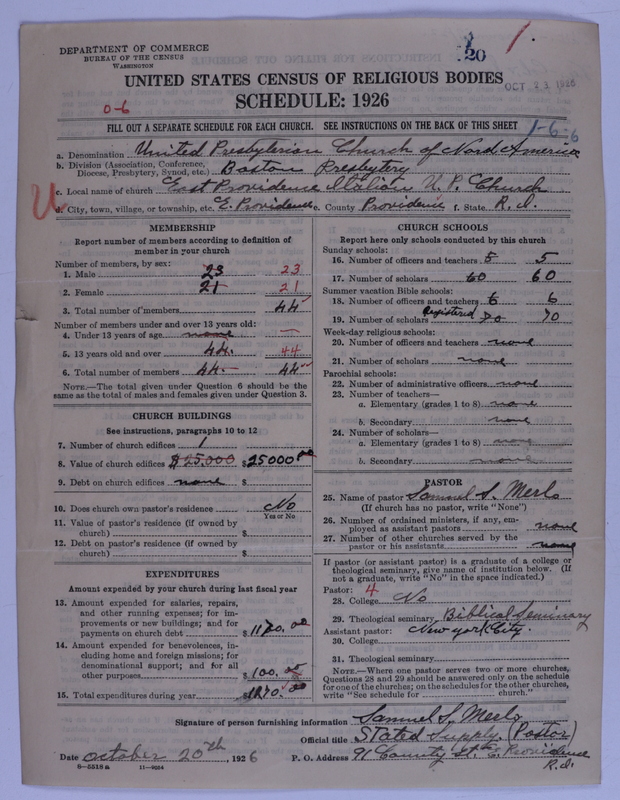 DEPARTMENT OF COMMERCE
BUREAU OF THE CENSUS
WASHINGTON
20
1
OCT 23 1926
UNITED STATES CENSUS OF RELIGIOUS BODIES
SCHEDULE: 1926
0-6
FILL OUT A SEPARATE SCHEDULE FOR EACH CHURCH. SEE INSTRUCTIONS ON THE BACK OF THIS SHEET
1-6-6
a. Denomination United Presbyterian Church of Nord America
b. Division (Association, Conference, Diocese, Presbytery, Synod, etc.) Boston Presbytery
c. Local name of church East Providence Italian U. P. Church
d. City, town, village, or township, etc. E. Providence e. County Providence f. State R. I.
MEMBERSHIP
Report number of members according to definition of
member in your church
Number of members by sex:
1. Male 23 23
2. Female 21 21
3. Total number of members 44
Number of members under and over 13 years old:
4. Under 13 years of age none —
5. 13 years old and over 44. 44
6. Total number of members 44.— 44
NOTE.—The total given under Question 6 should be
same as the total of males and females given under Question 3.
CHURCH BUILDINGS
See instructions, paragraphs 10 to 12
7. Number of church edifices 1
8. Value of church edifices $25.000 $25000 00
9. Debt on church edifices none $
10. Does church own pastor's residence No
Yes or No
11. Value of pastor's residence (if owned by
church) $
12. Debt on pastor's residence (if owned by
church) $
EXPENDITURES
Amount expended by your church during last fiscal
year
13. Amount expended for salaries, repairs,
and other running expenses; for im-
provements or new buildings; and for
payments on church debt $1170.00
14. Amount expended for benevolences, in-
cluding home and foreign missions; for
denominational support; and for all
other purposes $100.
15. Total expenditures during year $1270.00
CHURCH SCHOOLS
Report here only schools conducted by this church
Sunday schools:
16. Number of officers and teachers 5 5
17. Number of scholars 60 60
Summer vacation Bible schools:
18. Number of officers and teachers 6 6
19. Number of scholars Registered 70 70
Week-day religious schools:
20. Number of officers and teachers none
21. Number of scholars none
Parochial schools:
22. Number of administrative officers none
23. Number of teachers—
a. Elementary (grades 1 to 8) none
b. Secondary none
24. Number of scholars—
a. Elementary (grades 1 to 8) none
b. Secondary none
PASTOR
25. Name of pastor Samuel S. Merlo
(If church has no pastor, write "None")
26. Number of ordained ministers, if any, em-
ployed as assistant pastors none
27. Number of other churches served by the
pastor or his assistants none
If pastor (or assistant pastor) is a graduate of a college or
theological seminary, give name of institution below. (If
not a graduate, write "No" in the space indicated.)
Pastor: 4
28. College No
29. Theological seminary Biblical Seminary
Assistant pastor: New York City.
30. College
31. Theological seminary
NOTE.—Where one pastor serves two or more churches,
Questions 28 and 29 should be answered only on the schedule
for one of the churches; on the schedules for the other churches,
write "See schedule for church."
Signature of person furnishing information Samuel S. Merlo
Official title Stated Supply. (Pastor)
Date October 20th, 1926 P. O. Address 91 County St. E. Providence
R.I.
8-5518 a 11-9264